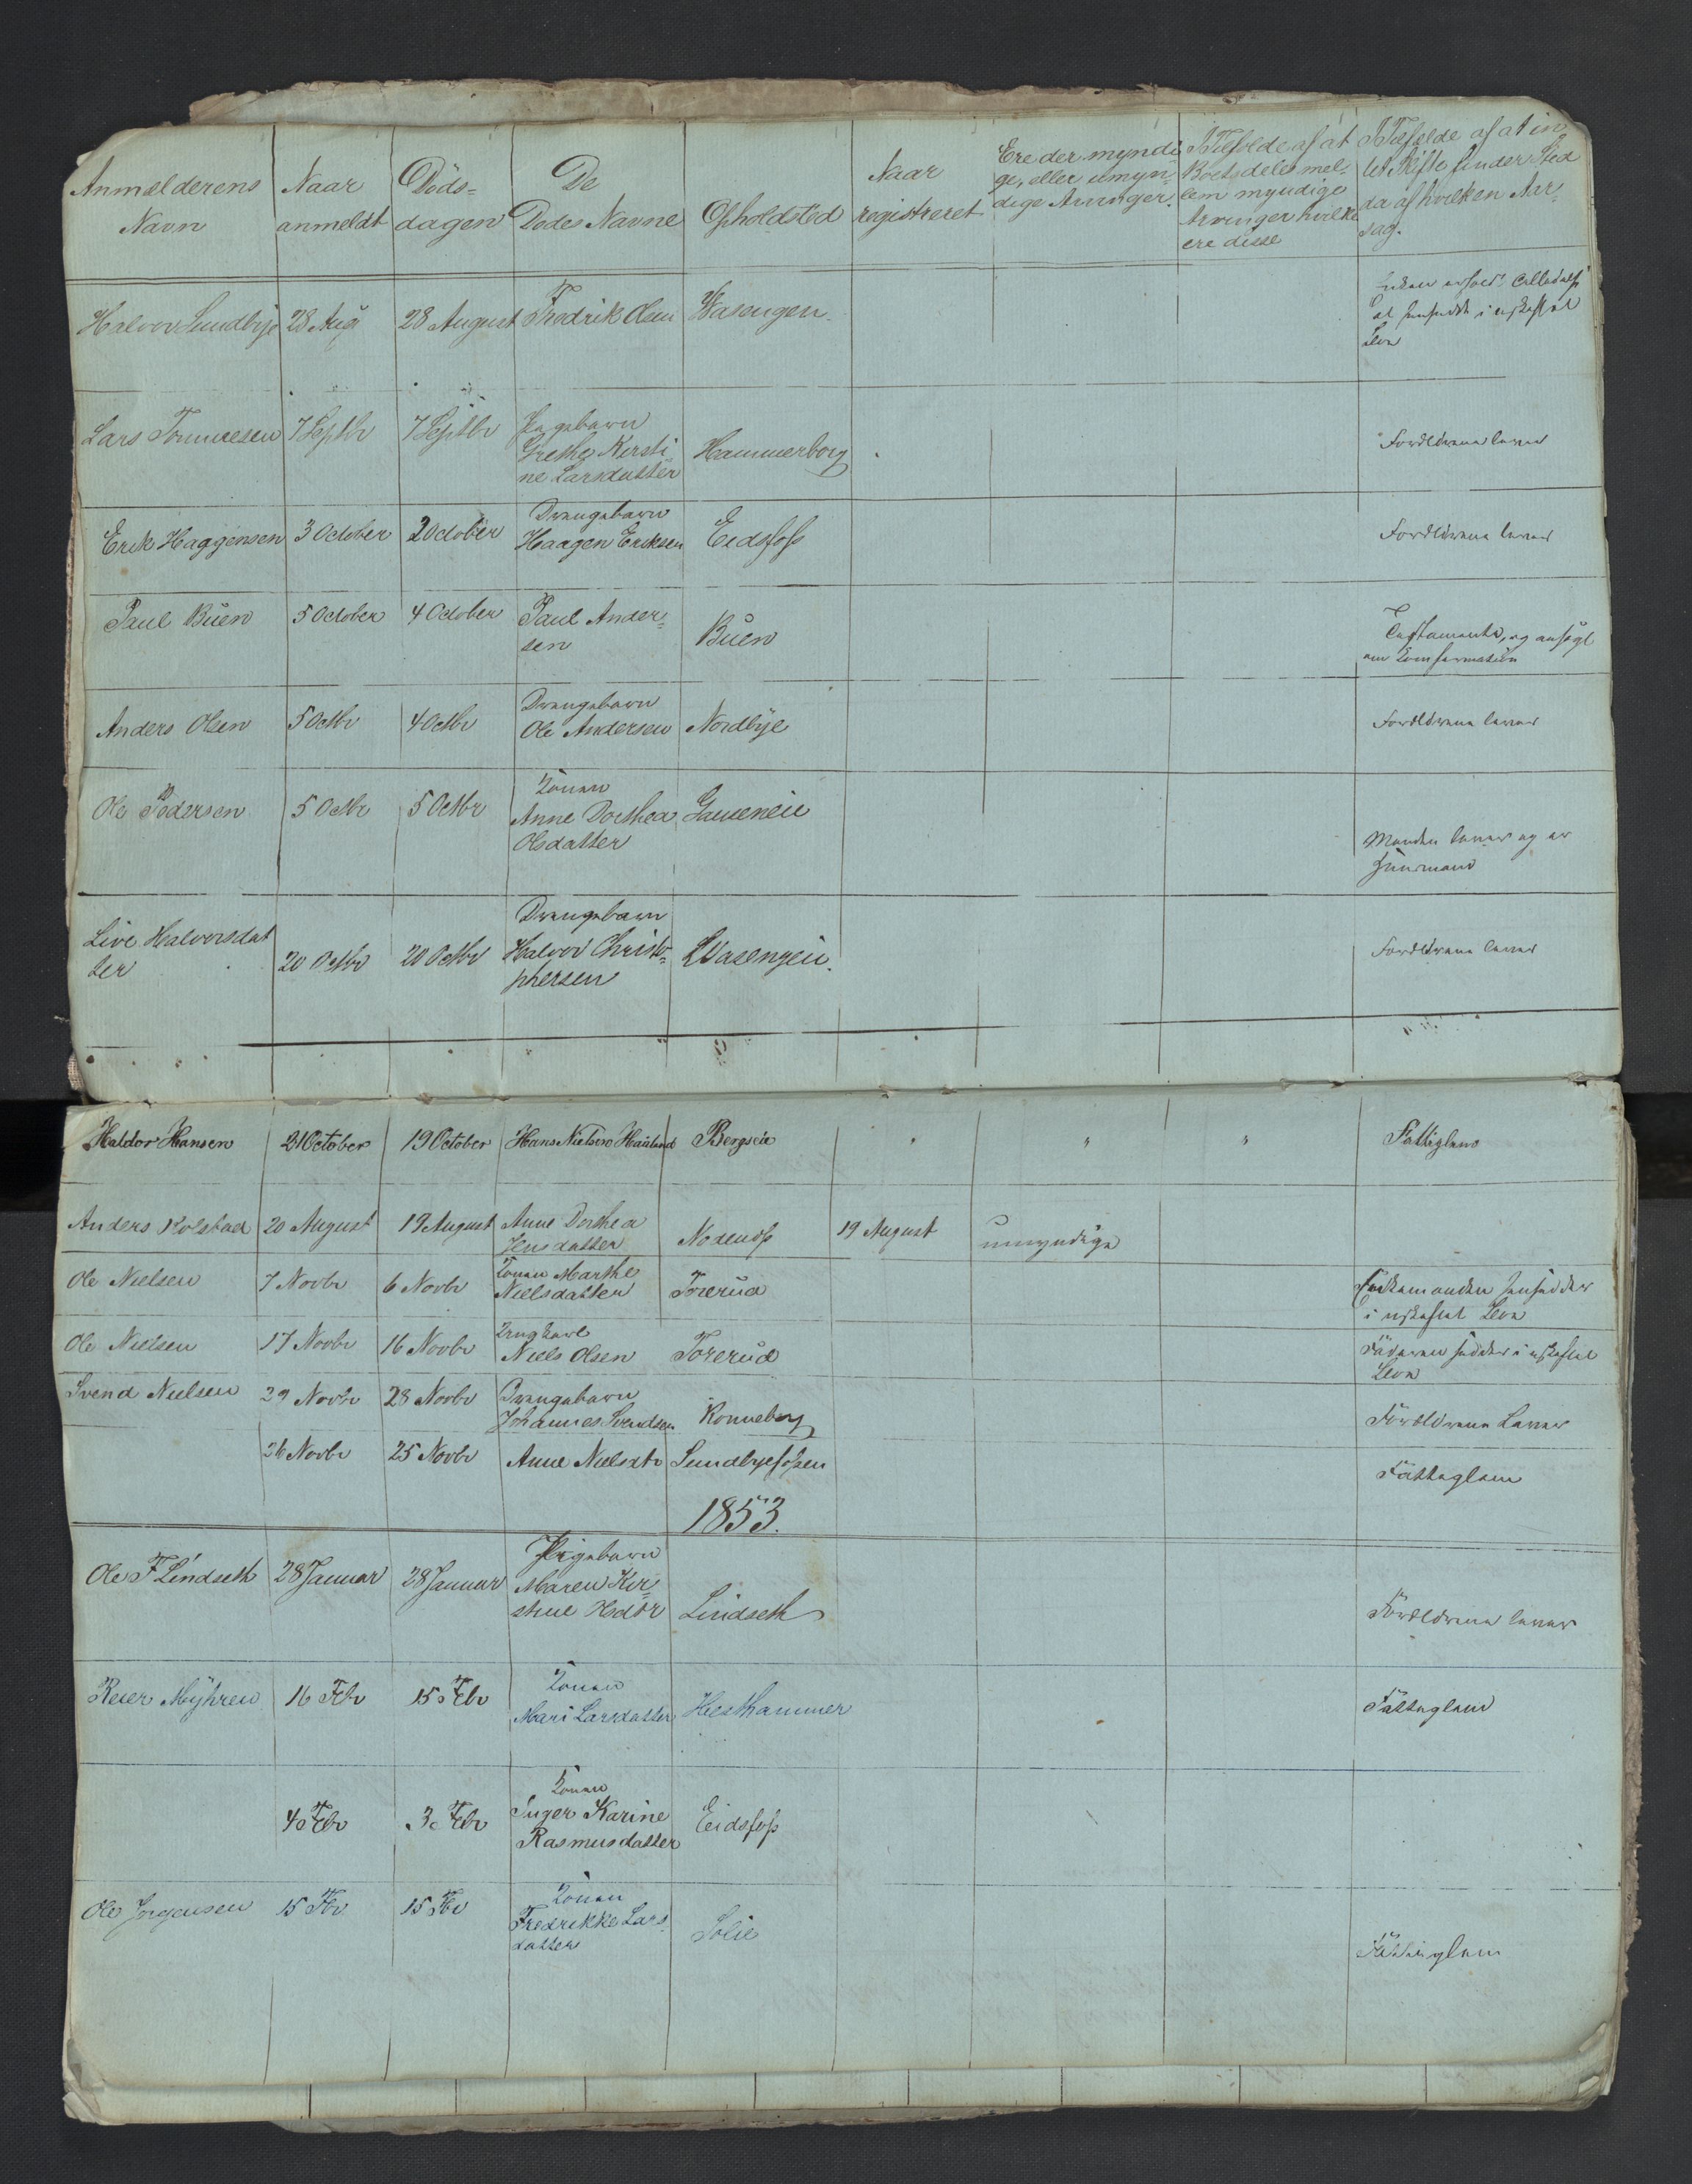 Anmelderens Navn | Naar anmeldt | Döds-dagen | De Dodes Navne | Opholdsted | Naar registreret | Ere der myndi ge, eller umyn- dige Arvinger. | I Tilfelde af at Boet deles mel- lem myndige Arvinger hvilke ere disse | I Tilfelde af at in tet Skifte finder Sted da af hvilken Aar- sag.
Halvor Sundbye | 28 Aug | 28 August | Fredrik Olsen | Wasengen | i uskiftet
Lars Tommesen | 7 Septbr | 7 Septbr | Pigebarn Grethe Kirsti- ne Larsdatter | Hammerborg | Forældrene lever
Erik Haggensen | 3 October | 2 October | Drengebarn Haagen Eriksen | Eidsfos | Forældrene lever
Paul Buen | 5 October | 4 October | Paul Ander- sen | Buen | Testamente, og ansøgt om Comfirmation
Anders Olsen | 5 Octbr | 4 Octbr | Drengebarn Ole Andersen | Nordbye | Forældrene lever
Ole Pedersen | 5 Octbr | 5 Octbr | Konen Anne Dorthea Olsdatter | Gauseneie | Manden lever og er Huusmand
Live Halvorsdat ter | 20 Octbr | 20 Octbr | Drengebarn Halvor Christo- phersen | Wasengen | Forældrene lever
Haldor Hansen | 21 October | 19 October | Hans Nielsen | Bergseie | " | " | " | Fattiglem
Anders Kolstad | 20 August | 19 August | Anne Dorthea Jensdatter | 19 August | umyndige
Ole Nielsen | 7 Novbr | 6 Novbr | Konen Marthe Nielsdatter | Torerud | Enkemanden hensidder i uskiftet Boe
Ole Nielsen | 17 Novbr | 16 Novbr | Ungkarl Niels Olsen | Torerud | Faderen sidder i uskiftet Boe
Svend Nielsen | 29 Novbr | 28 Novbr | Drengebarn Johannes Svendsen | Konneberg | Forældrene lever
26 Novbr | 25 Novbr | Anne Nielsdtr | Sundbyefossen | Fattiglem
1853.
Ole F Lindseth | 28 Januar | 28 Januar | Pigebarn Maren Kir- stine | Lindseth | Forældrene lever
Reier Myhren | 16 Febr | 15 Febr | Konen Mari Larsdatter | Hesthammer | Fattiglem
4 Febr | 3 Febr | Konen Inger Karine Rasmusdatter | Eidsfos
Ole Jorgensen | 15 Febr | 15 Febr | Konen Fredrikke Lars datter | Solie | Fattiglem